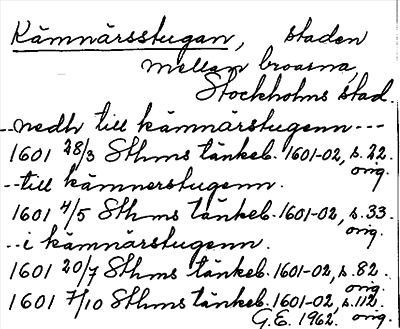 Kämnärsstugan, staden
mellan broarna,
Stockholms stad.
--nedh till kämnärstugenn---
1601 28/3 Sthms tänkeb. 1601-02, s.22.
orig.
--till kämnerstugenn.
1601 4/5 Sthms tänkeb. 1601-02, s.33.
orig.
--i kämnärstugenn.
1601 20/7 Sthms tänkeb. 1601-02, s.82.
orig.
1601 7/10 Sthms tänkeb. 1601-02, s.112.
G.E. 1962. orig.